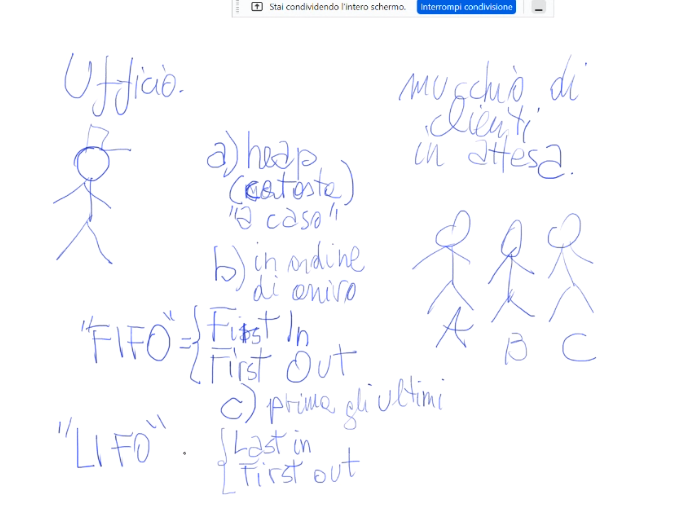 Stai condividendo l'intero schermo. Interrompi condivisione
Ufficio.
mucchio di
clienti
in attesa.
a) heap
(catasta)
"a caso"
b) in ordine
di arrivo
"FIFO" = { First In
First Out
A B C
c) prima gli ultimi
"LIFO" . { Last in
First out